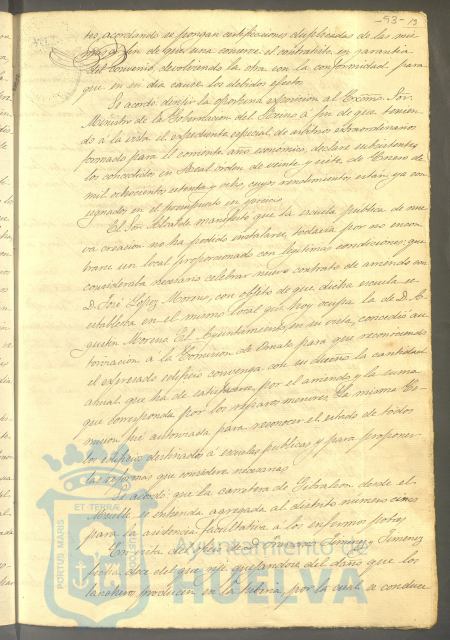 -93- 13
to, acordando se pongan certificaciones duplicadas de las mis
mas a fin de que una conserve el contratista en garantia
del convenio, devolviendo la otra con la conformidad para
que en su dia cause los debidos efectos.
Se acordó dirigir la oportuna exposicion al Excmo. Sor.
Ministro de la Gobernacion del Reino a fin de que tenien
do a la vista el expediente especial de arbitrios extraordinarios
formado para el corriente año económico, declare subsistentes
los concedidos en Real orden de veinte y siete de Enero de
mil ochocientos setenta y ocho cuyos rendimientos estan ya con
signados en el presupuesto en ejercicio
El Sor. Alcalde manifestó que la escuela pública de nue
va creacion no ha podido instalarse todavia por no encon
trarse un local proporcionado con legitimas condiciones: que
consideraba necesario celebrar nuevo contrato de arriendo con
D. José Lopez Moreno, con objeto de que dicha escuela se
establezca en el mismo local que hoy ocupa la de D. A
gustin Moreno. El Ayuntamiento, en su vista, concedió au
torizacion a la Comision de Ornato para que reconociendo
el expresado edificio convenga con su dueño la cantidad
anual que ha de satisfacerse por el arriendo y la suma
que corresponda por los reparos menores. La misma Co-
mision fue autorizada para reconocer el estado de todos
los edificios destinados a escuelas públicas y para proponer
las reformas que considere necesarias
Se acordó que la carretera de Gibraleon desde el
Muelle se entienda agregada al distrito número cinco
para la asistencia facultativa a los enfermos pobres
En vista del oficio de D. Jimenez y Jimenez
fecha doce del que rije quejandose del daño que los
lancheros producen en la por la cual se conduce
PORTUS MARIS
ET TERRÆ
CUSTODIA
Ayuntamiento de
HUELVA